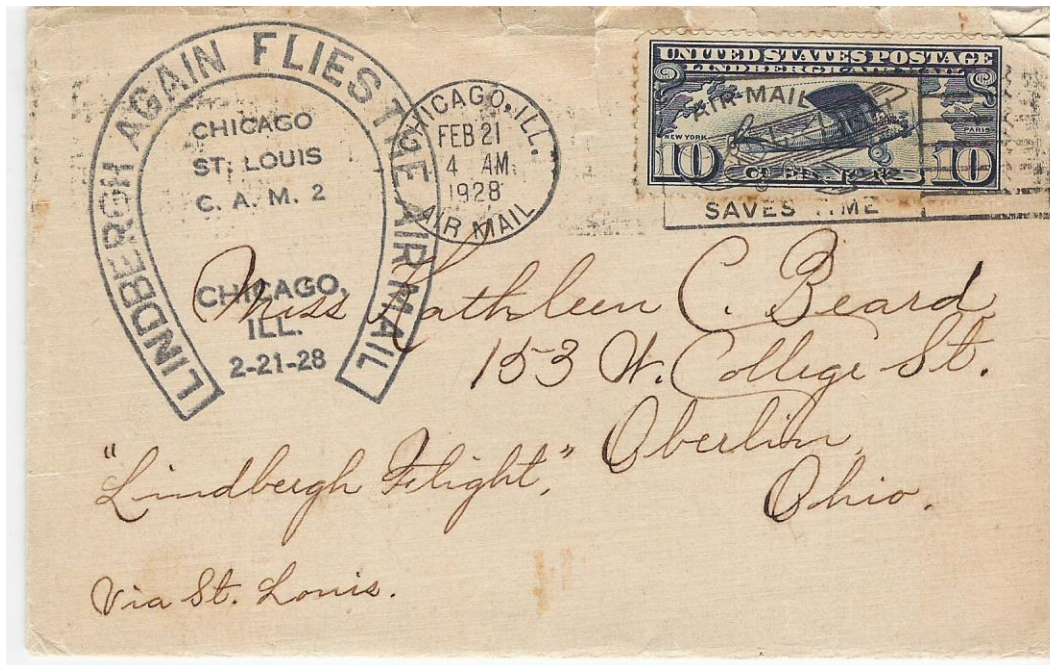 LINDBERGH AGAIN FLIES THE AIR MAIL
CHICAGO
ST. LOUIS
C. A. M. 2
CHICAGO,
ILL.
2-21-28
CHICAGO, ILL.
FEB 21
4 AM
1928
AIR MAIL
UNITED STATES POSTAGE
LINDBERGH AIR MAIL
NEW YORK
PARIS
10 CENTS 10
AIR MAIL
SAVES TIME
Miss Kathleen C. Beard
153 W. College St.
Oberlin,
Ohio.
"Lindbergh Flight",
Via St. Louis.